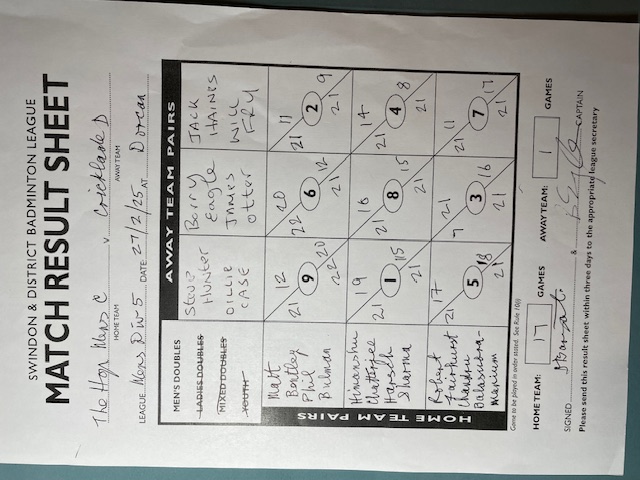 SWINDON & DISTRICT BADMINTON LEAGUE
MATCH RESULT SHEET
The Hop Mens C v. Cricklade D
HOME TEAM AWAY TEAM
LEAGUE Mens Div 5 DATE: 27/2/25 AT Dorcan
AWAY TEAM PAIRS
MEN'S DOUBLES
LADIES DOUBLES
MIXED DOUBLES
YOUTH
Steve Hunter
OLLIE CASE
Barry Eagle
JAMES Otter
JACK HAINES
WILL FRY
HOME TEAM PAIRS
Matt Bentley
Phil Bulman
21 12 9 22 20
22 20 6 21 12
21 11 2 21 9
Himanshu Chatterjee
Harsh Sharma
21 19 1 21 15
21 16 8 21 15
21 14 4 21 8
Robert Fairhurst
21 17 5 21 18
7 21 3 21 16
21 11 7 21 17
Games to be played in order stated. See Rule 10(i)
HOME TEAM: 17 GAMES AWAY TEAM: 1 GAMES
SIGNED & CAPTAIN
Please send this result sheet within three days to the appropriate league secretary